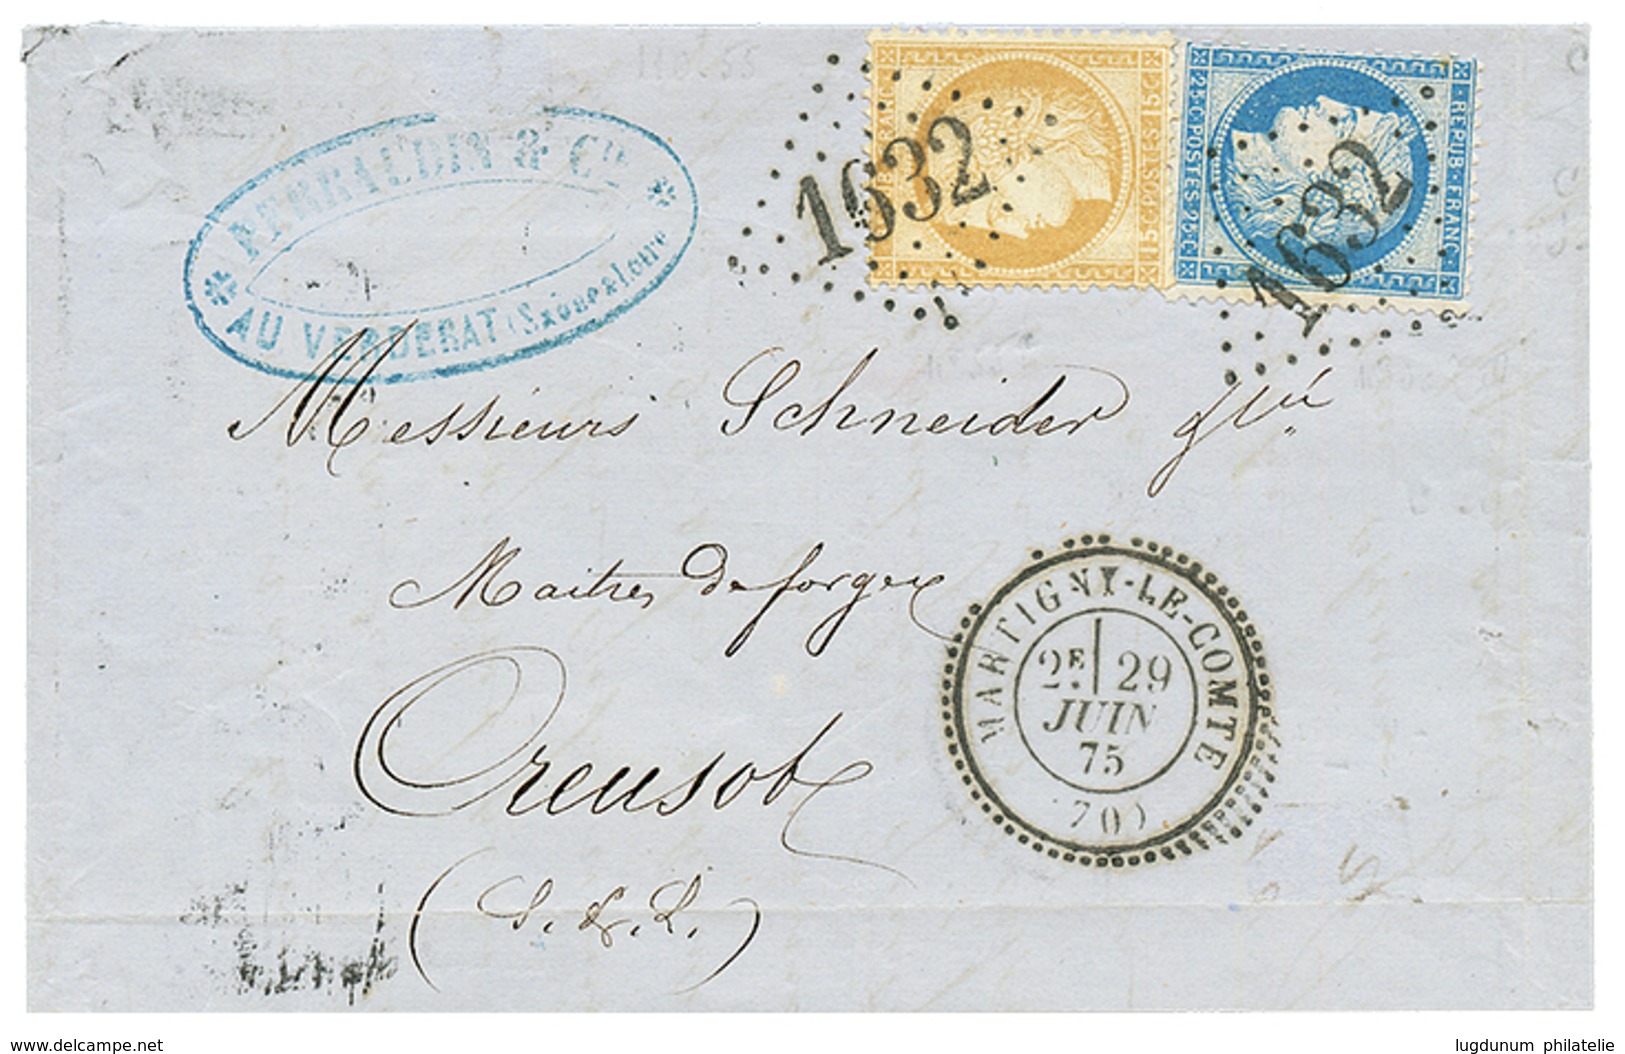 & Cie
AU VERDERAT (Saône & Loire)
15 C. POSTES 15 C.
1632
REPUB. FRANC.
25 C. POSTES 25 C.
1632
Messieurs Schneider &
Maitres de forges
Creusot
(S. & L.)
MARTIGNY-LE-COMTE
2E 29
JUIN
75
(70)
www.delcampe.net
lugdunum philatelie